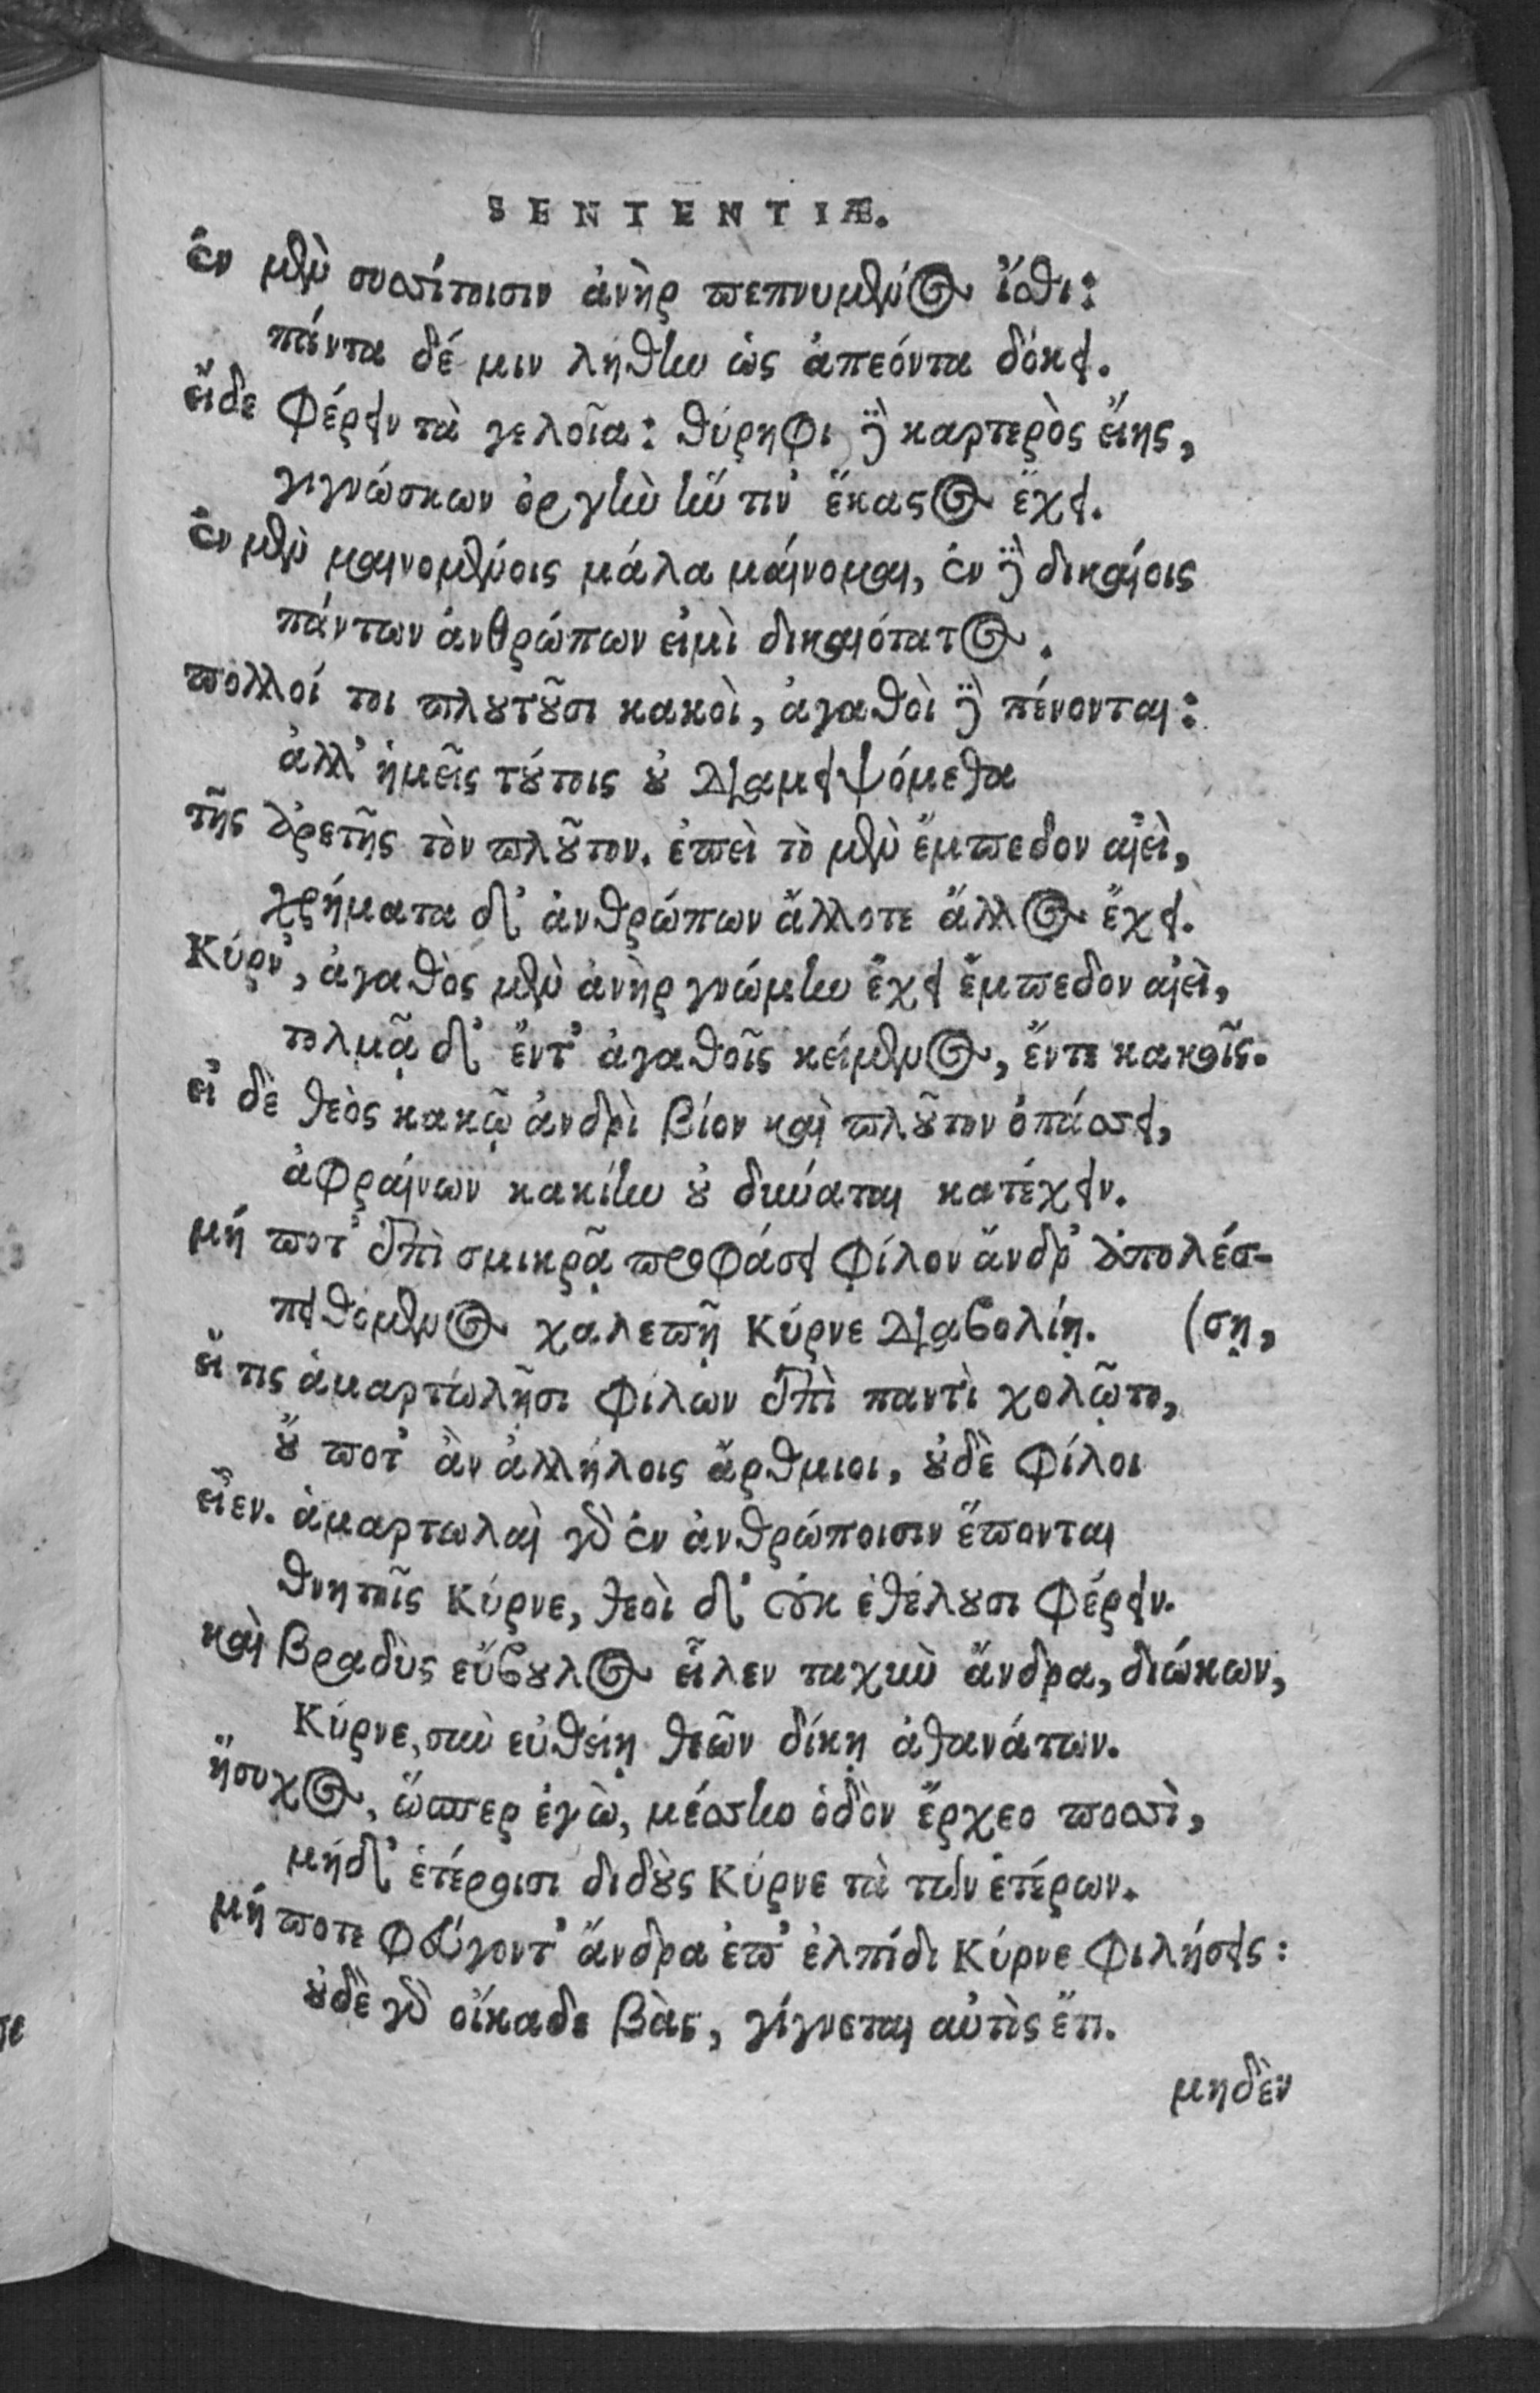 SENTENTIÆ.
ἐν μὲν συσσίτοισιν ἀνὴρ πεπνυμένος ἴσθι:
πάντα δέ μιν λήθην ὡς ἀπεόντα δόκει.
εἴδε φέρειν τὰ γελοῖα: θύρηφι δὲ καρτερὸς εἴης,
γιγνώσκων ὀργὴν ἥν τιν' ἕκαστος ἔχει.
ἐν μὲν μαινομένοις μάλα μαίνομαι, ἐν δὲ δικαίοις
πάντων ἀνθρώπων εἰμὶ δικαιότατος.
πολλοί τοι πλουτοῦσι κακοὶ, ἀγαθοὶ δὲ πένονται:
ἀλλ' ἡμεῖς τούτοις οὐ διαμειψόμεθα
τῆς ἀρετῆς τὸν πλοῦτον. ἐπεὶ τὸ μὲν ἔμπεδον αἰεὶ,
χρήματα δ' ἀνθρώπων ἄλλοτε ἄλλος ἔχει.
Κύρν', ἀγαθὸς μὲν ἀνὴρ γνώμην ἔχει ἔμπεδον αἰεὶ,
τολμᾷ δ' ἔντ' ἀγαθοῖς κείμενος, ἔντε κακοῖς.
εἰ δὲ θεὸς κακῷ ἀνδρὶ βίον καὶ πλοῦτον ὀπάσσει,
ἀφραίνων κακίην οὐ δύναται κατέχειν.
μή ποτ' ἐπὶ σμικρᾷ προφάσει φίλον ἄνδρ' ἀπολέσ-
πειθόμενος χαλεπῇ Κύρνε διαβολίῃ. (σῃ,
εἴ τις ἁμαρτωλῇσι φίλων ἐπὶ παντὶ χολῷτο,
οὔ ποτ' ἂν ἀλλήλοις ἄρθμιοι, οὐδὲ φίλοι
εἶεν. ἁμαρτωλαὶ γὰρ ἐν ἀνθρώποισιν ἕπονται
θνητοῖς Κύρνε, θεοὶ δ' οὐκ ἐθέλουσι φέρειν.
καὶ βραδὺς εὔβουλος εἷλεν ταχὺν ἄνδρα, διώκων,
Κύρνε, σὺν εὐθείῃ θεῶν δίκῃ ἀθανάτων.
ἥσυχος, ὥσπερ ἐγὼ, μέσσην ὁδὸν ἔρχεο ποσσὶ,
μήδ' ἑτέροισι διδοὺς Κύρνε τὰ τῶν ἑτέρων.
μή ποτε φεύγοντ' ἄνδρα ἐπ' ἐλπίδι Κύρνε φιλήσεις:
οὐδὲ γὰρ οἴκαδε βὰς, γίγνεται αὐτὶς ἔτι.
μηδὲν